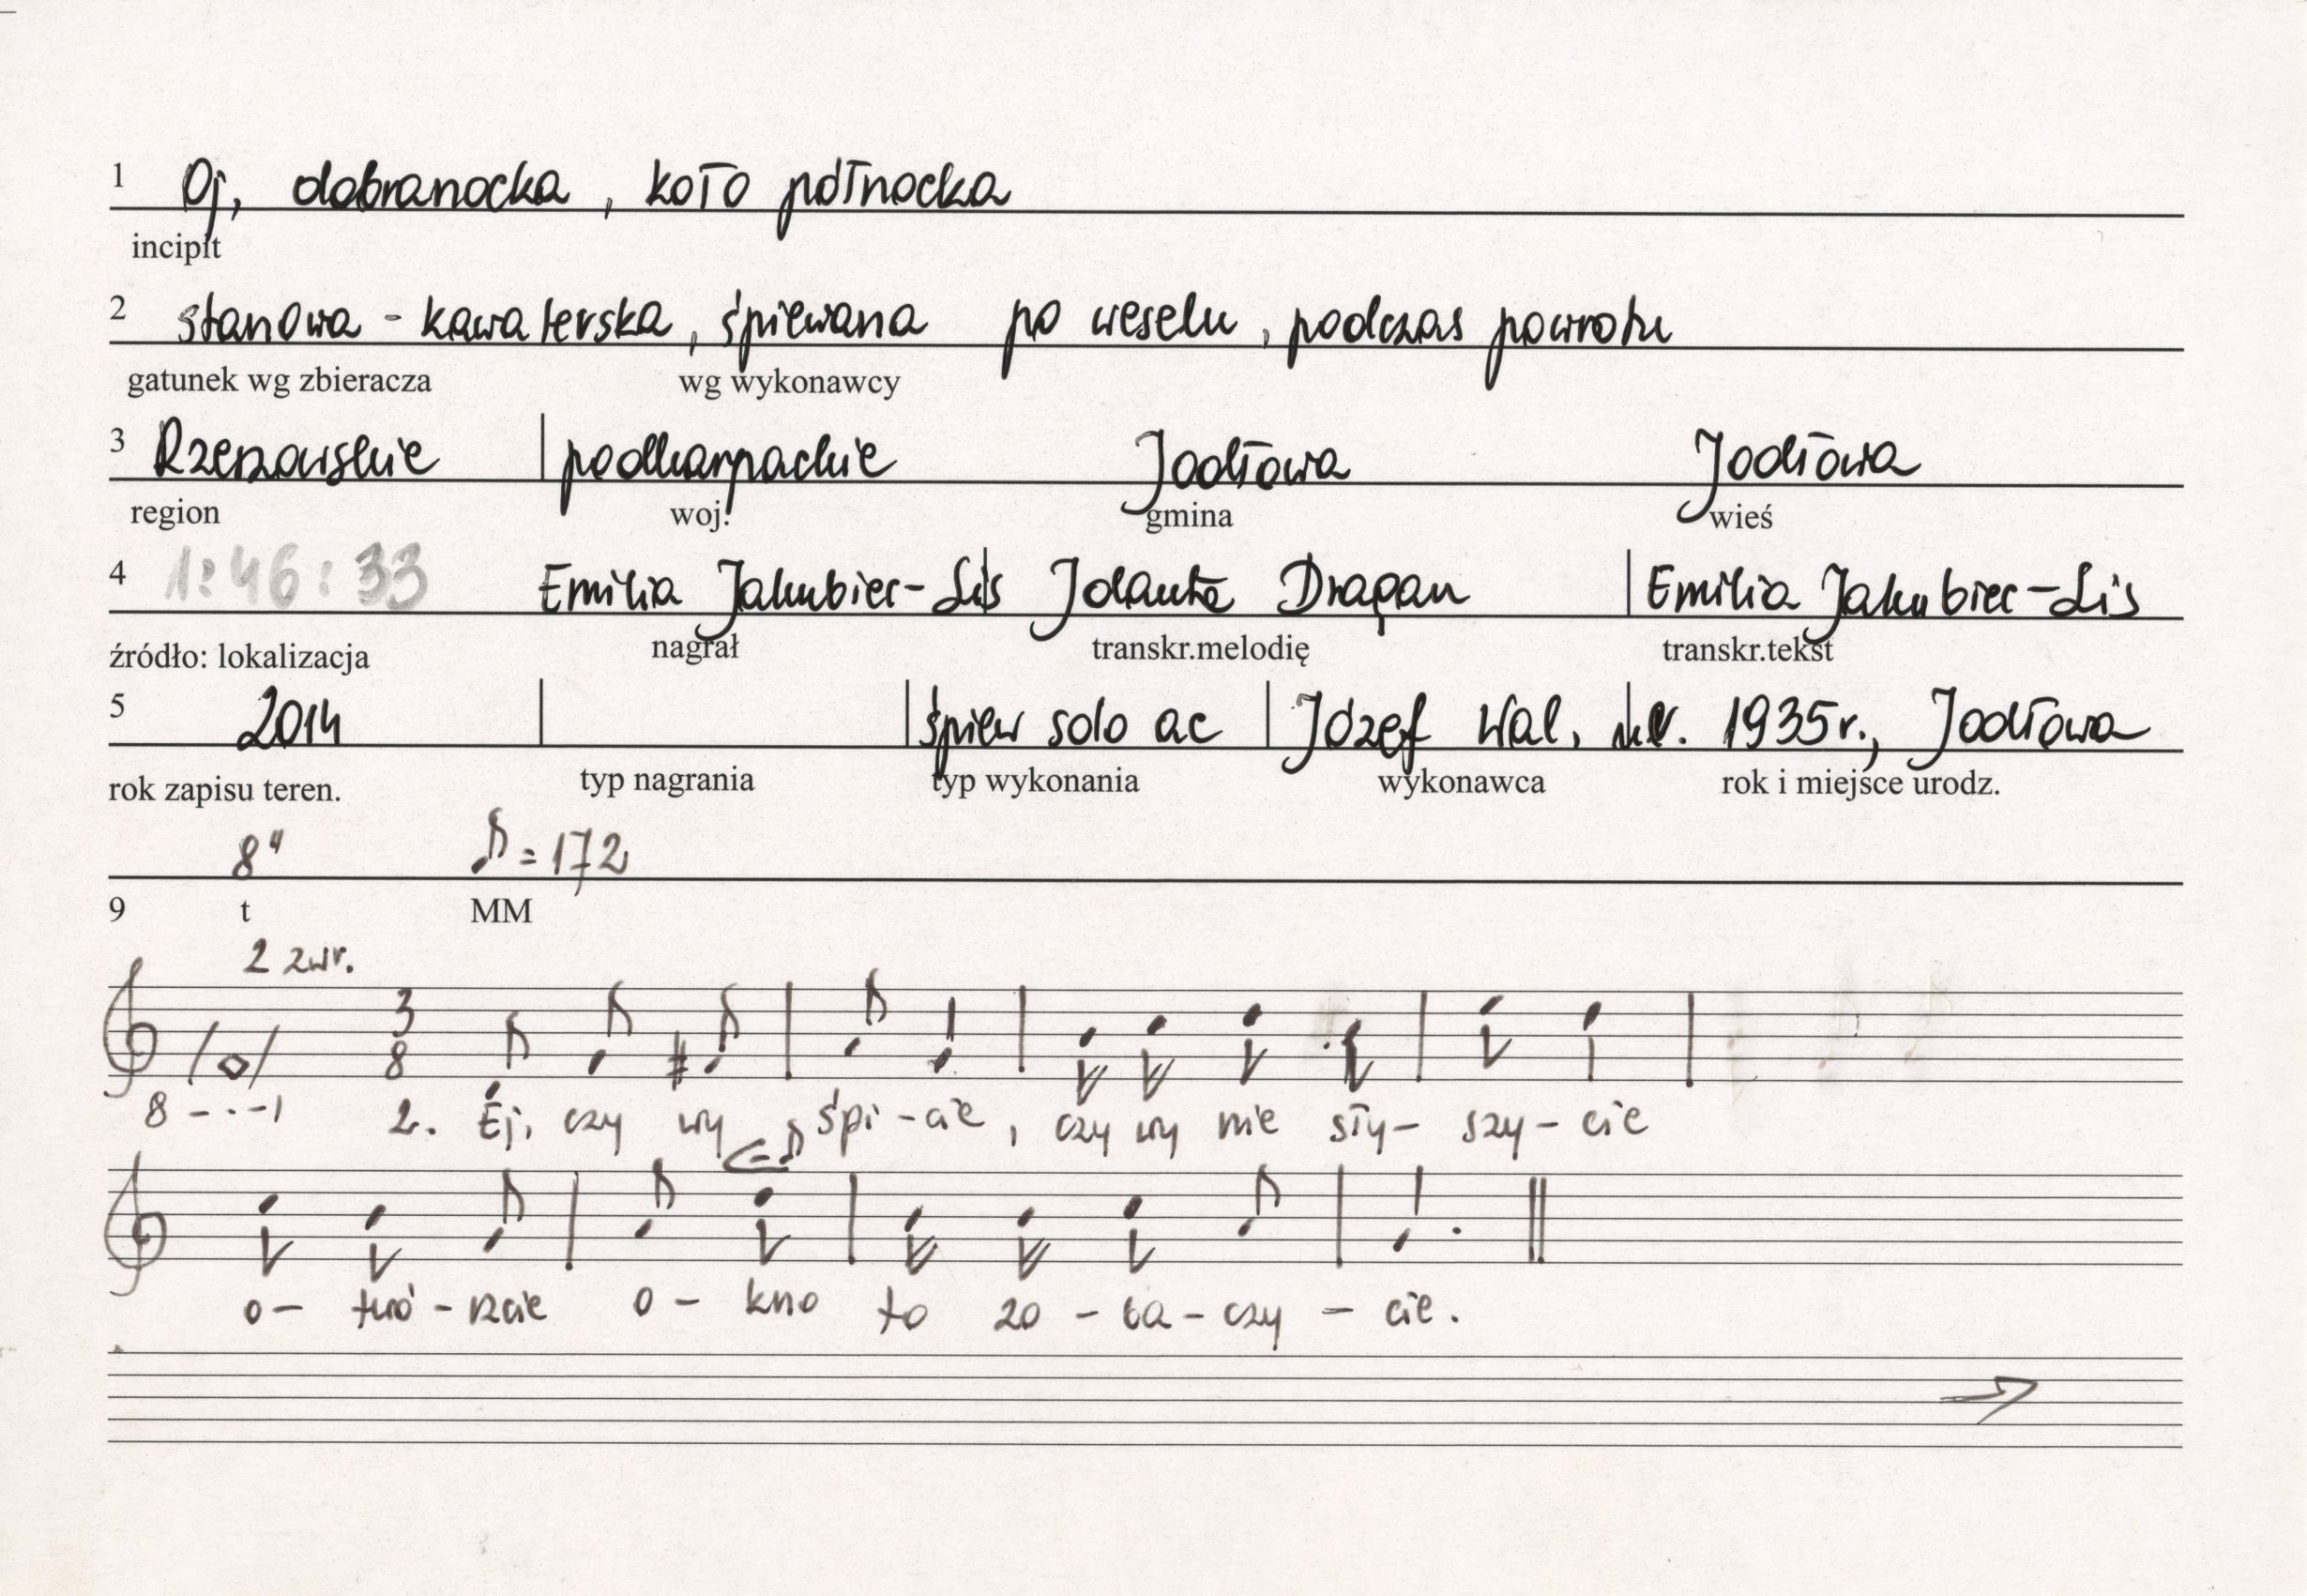 1 Oj, dobranocka, koło północka
incipit
2 stanowa - kawalerska, śpiewana po weselu, podczas powrotu
gatunek wg zbieracza wg wykonawcy
3 Rzeszowskie podkarpackie Jodłowa Jodłowa
region woj. gmina wieś
4 1:46:33 Emilia Jakubiec-Lis Jolanta Dragan Emilia Jakubiec-Lis
źródło: lokalizacja nagrał transkr.melodię transkr.tekst
5 2014 śpiew solo ac Józef Wal, ur. 1935r., Jodłowa
rok zapisu teren. typ nagrania typ wykonania wykonawca rok i miejsce urodz.
8" ♪ = 172
9 t MM
2 zwr.
3
8
8 - . - 1 2. Ej, czy wy śpi - cie, czy wy nie sły - szy - cie
o - twó - rzcie o - kno to zo - ba - czy - cie.